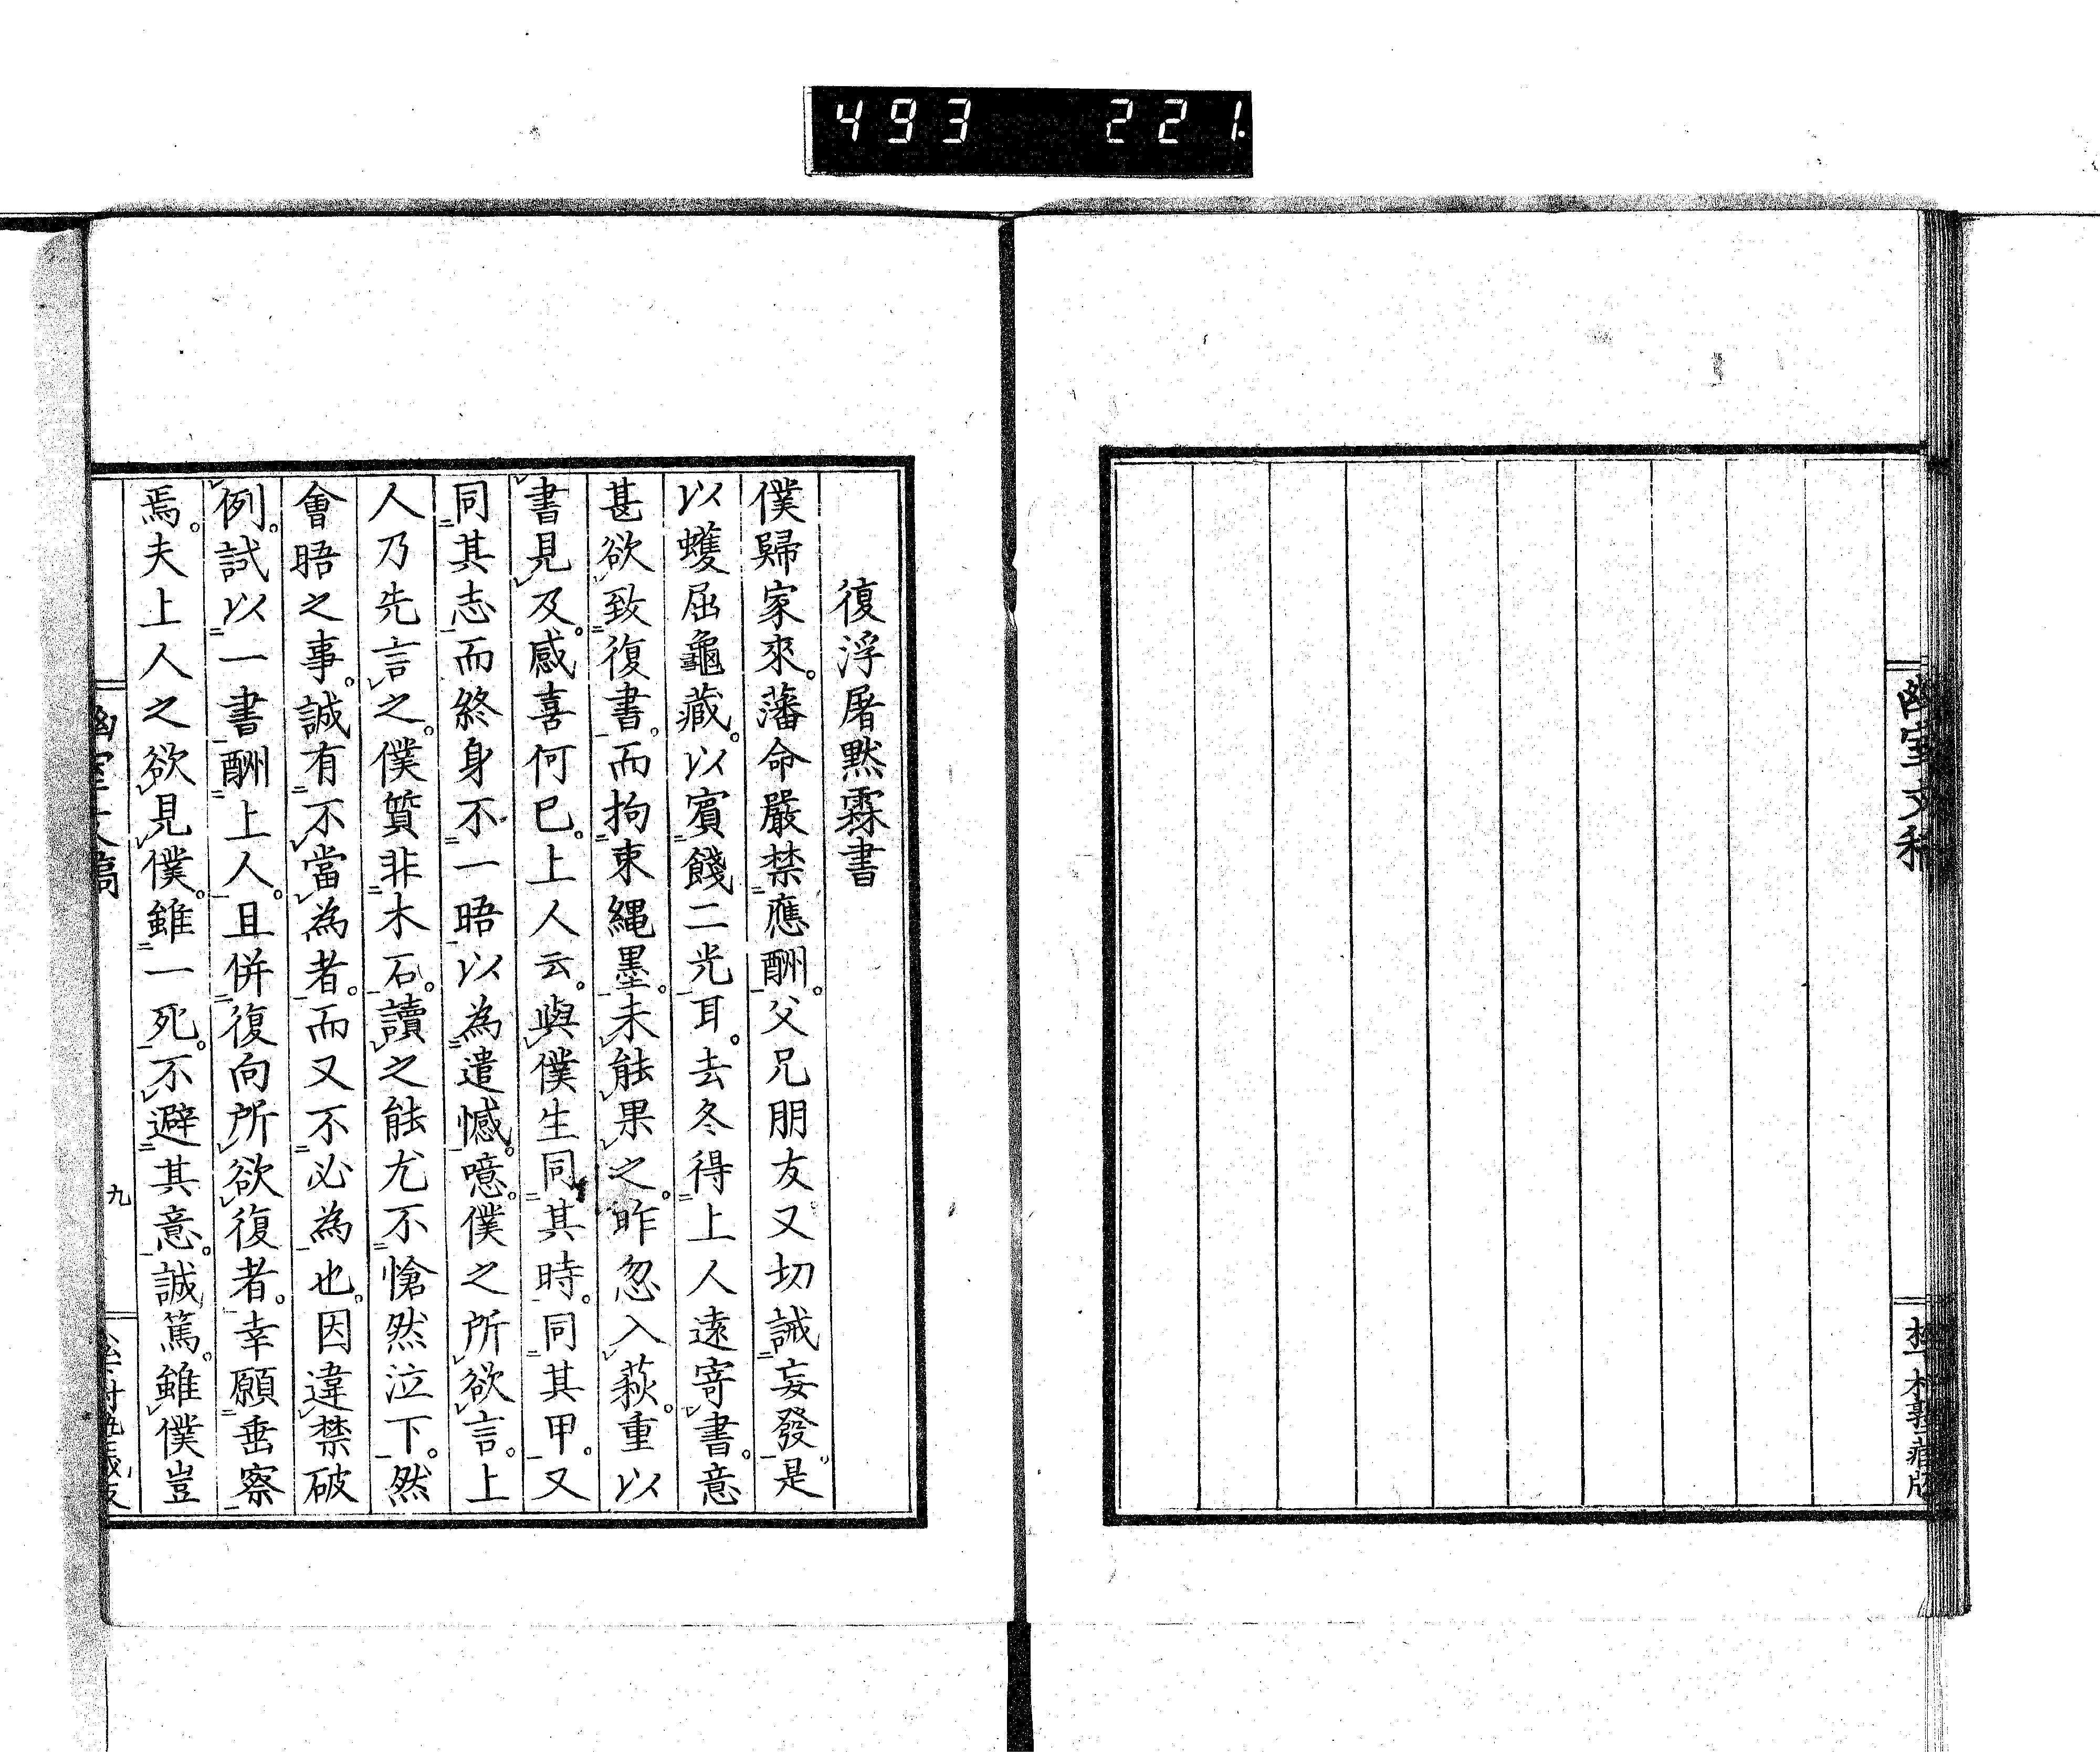 493 221
幽室文稿
松下村塾藏版
復浮屠黙霖書
僕歸家來。藩命嚴禁應酬。父兄朋友又切誡妄發。是
以蠖屈龜藏。以賓餞二光耳。去冬得上人遠寄書。意
甚欲致復書。而拘束繩墨。未能果之。昨忽入萩。重以
書見及。感喜何已。上人云。與僕生同其時。同其甲。又
同其志而終身不一晤以為遣憾。噫。僕之所欲言。上
人乃先言之。僕質非木石。讀之能尤不愴然泣下。然
會晤之事。誠有不當為者。而又不必為也。因違禁破
例。試以一書酬上人。且併復向所欲復者。幸願垂察
焉。夫上人之欲見僕。雖一死。不避其意。誠篤。雖僕豈
幽室文稿
九